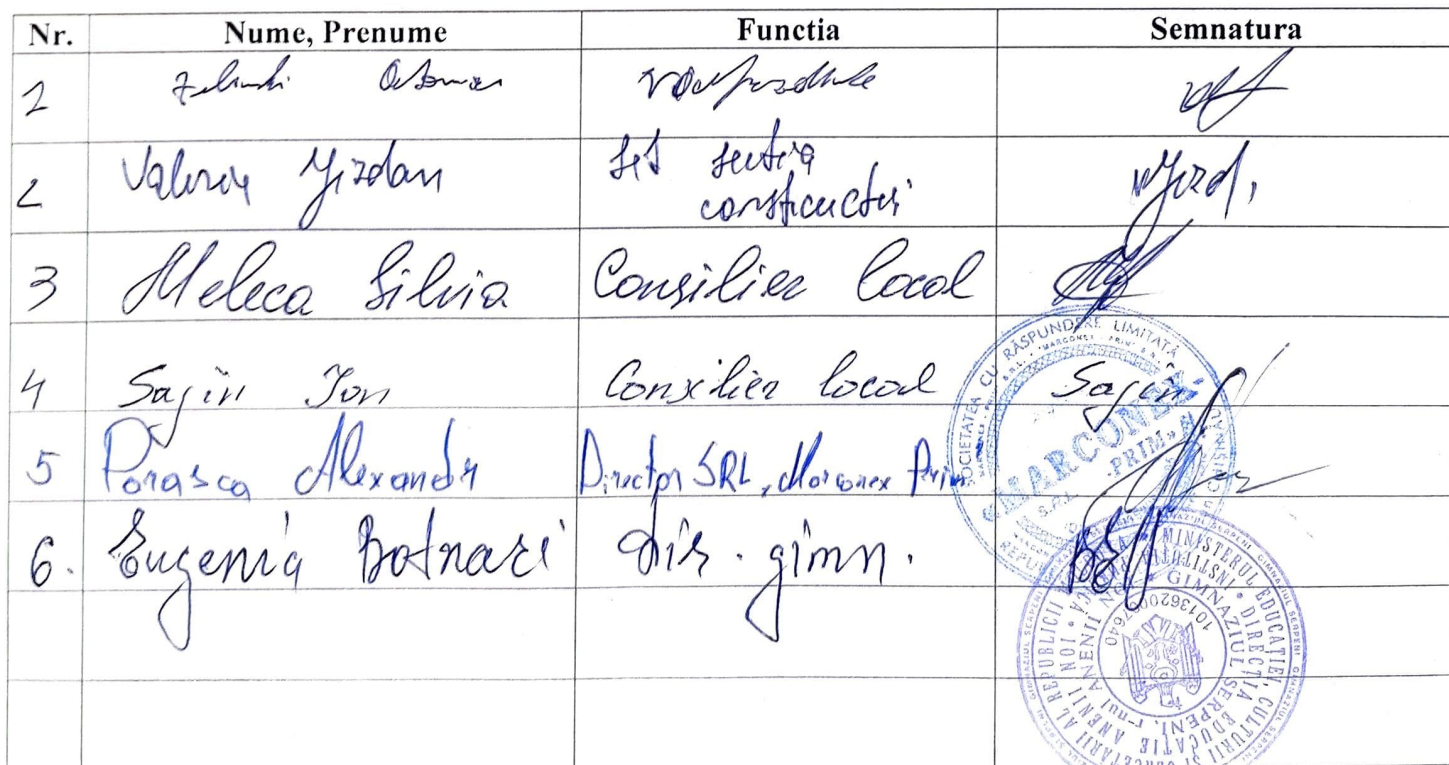 Nr. Nume, Prenume Functia Semnatura
1
2 Valeriu Jizdan Sef sectia
constructii
3 Meleca Silvia Consilier local
4 Sagin Ion Consilier local Sagin
5 Porasca Alexandr Director SRL, Marconex Prim
6. Eugenia Botnari dir. gimn.
SOCIETATEA CU RĂSPUNDERE LIMITATĂ
«MARCONEX
PRIM»
S.R.L.
MINISTERUL EDUCAȚIEI, CULTURII ȘI CERCETĂRII AL REPUBLICII
DIRECȚIA EDUCAȚIE ANENII NOI
GIMNAZIUL SERPENI, r-nul ANENII NOI
1013620007640